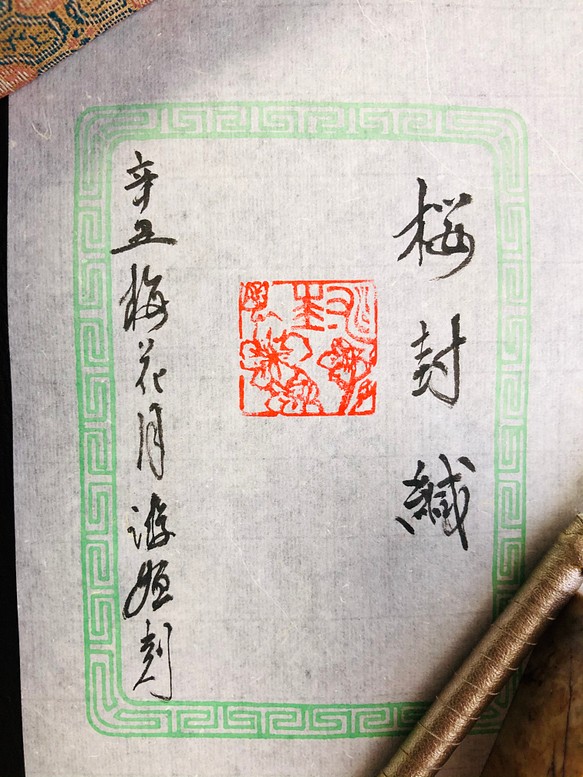 桜封緘
封
辛丑梅花月游姮刻